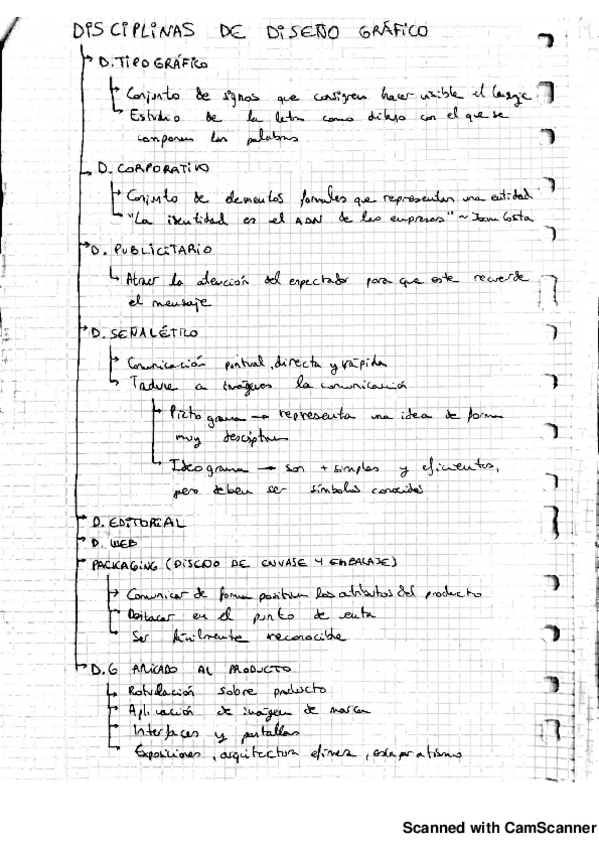 DISCIPLINAS DE DISEÑO GRÁFICO
D. TIPOGRÁFICO
Conjunto de signos que consiguen hacer visible el lenguaje
Estudio de la letra como dibujo con el que se
componen las palabras
D. CORPORATIVO
Conjunto de elementos formales que representan una entidad
"La identidad es el ADN de las empresas" ~ Joan Costa
D. PUBLICITARIO
Atraer la atención del espectador para que este recuerde
el mensaje
D. SEÑALÉTICO
Comunicación puntual, directa y rápida
Traduce a imágenes la comunicación
Pictograma → representa una idea de forma
muy descriptiva
Ideograma → son + simples y eficientes,
pero deben ser símbolos conocidos
D. EDITORIAL
D. WEB
PACKAGING (DISEÑO DE ENVASE Y EMBALAJE)
Comunicar de forma positiva los atributos del producto
Destacar en el punto de venta
Ser fácilmente reconocible
D.G APLICADO AL PRODUCTO
Rotulación sobre producto
Aplicación de imagen de marca
Interfaces y pantallas
Exposiciones, arquitectura efímera, escaparatismo
Scanned with CamScanner